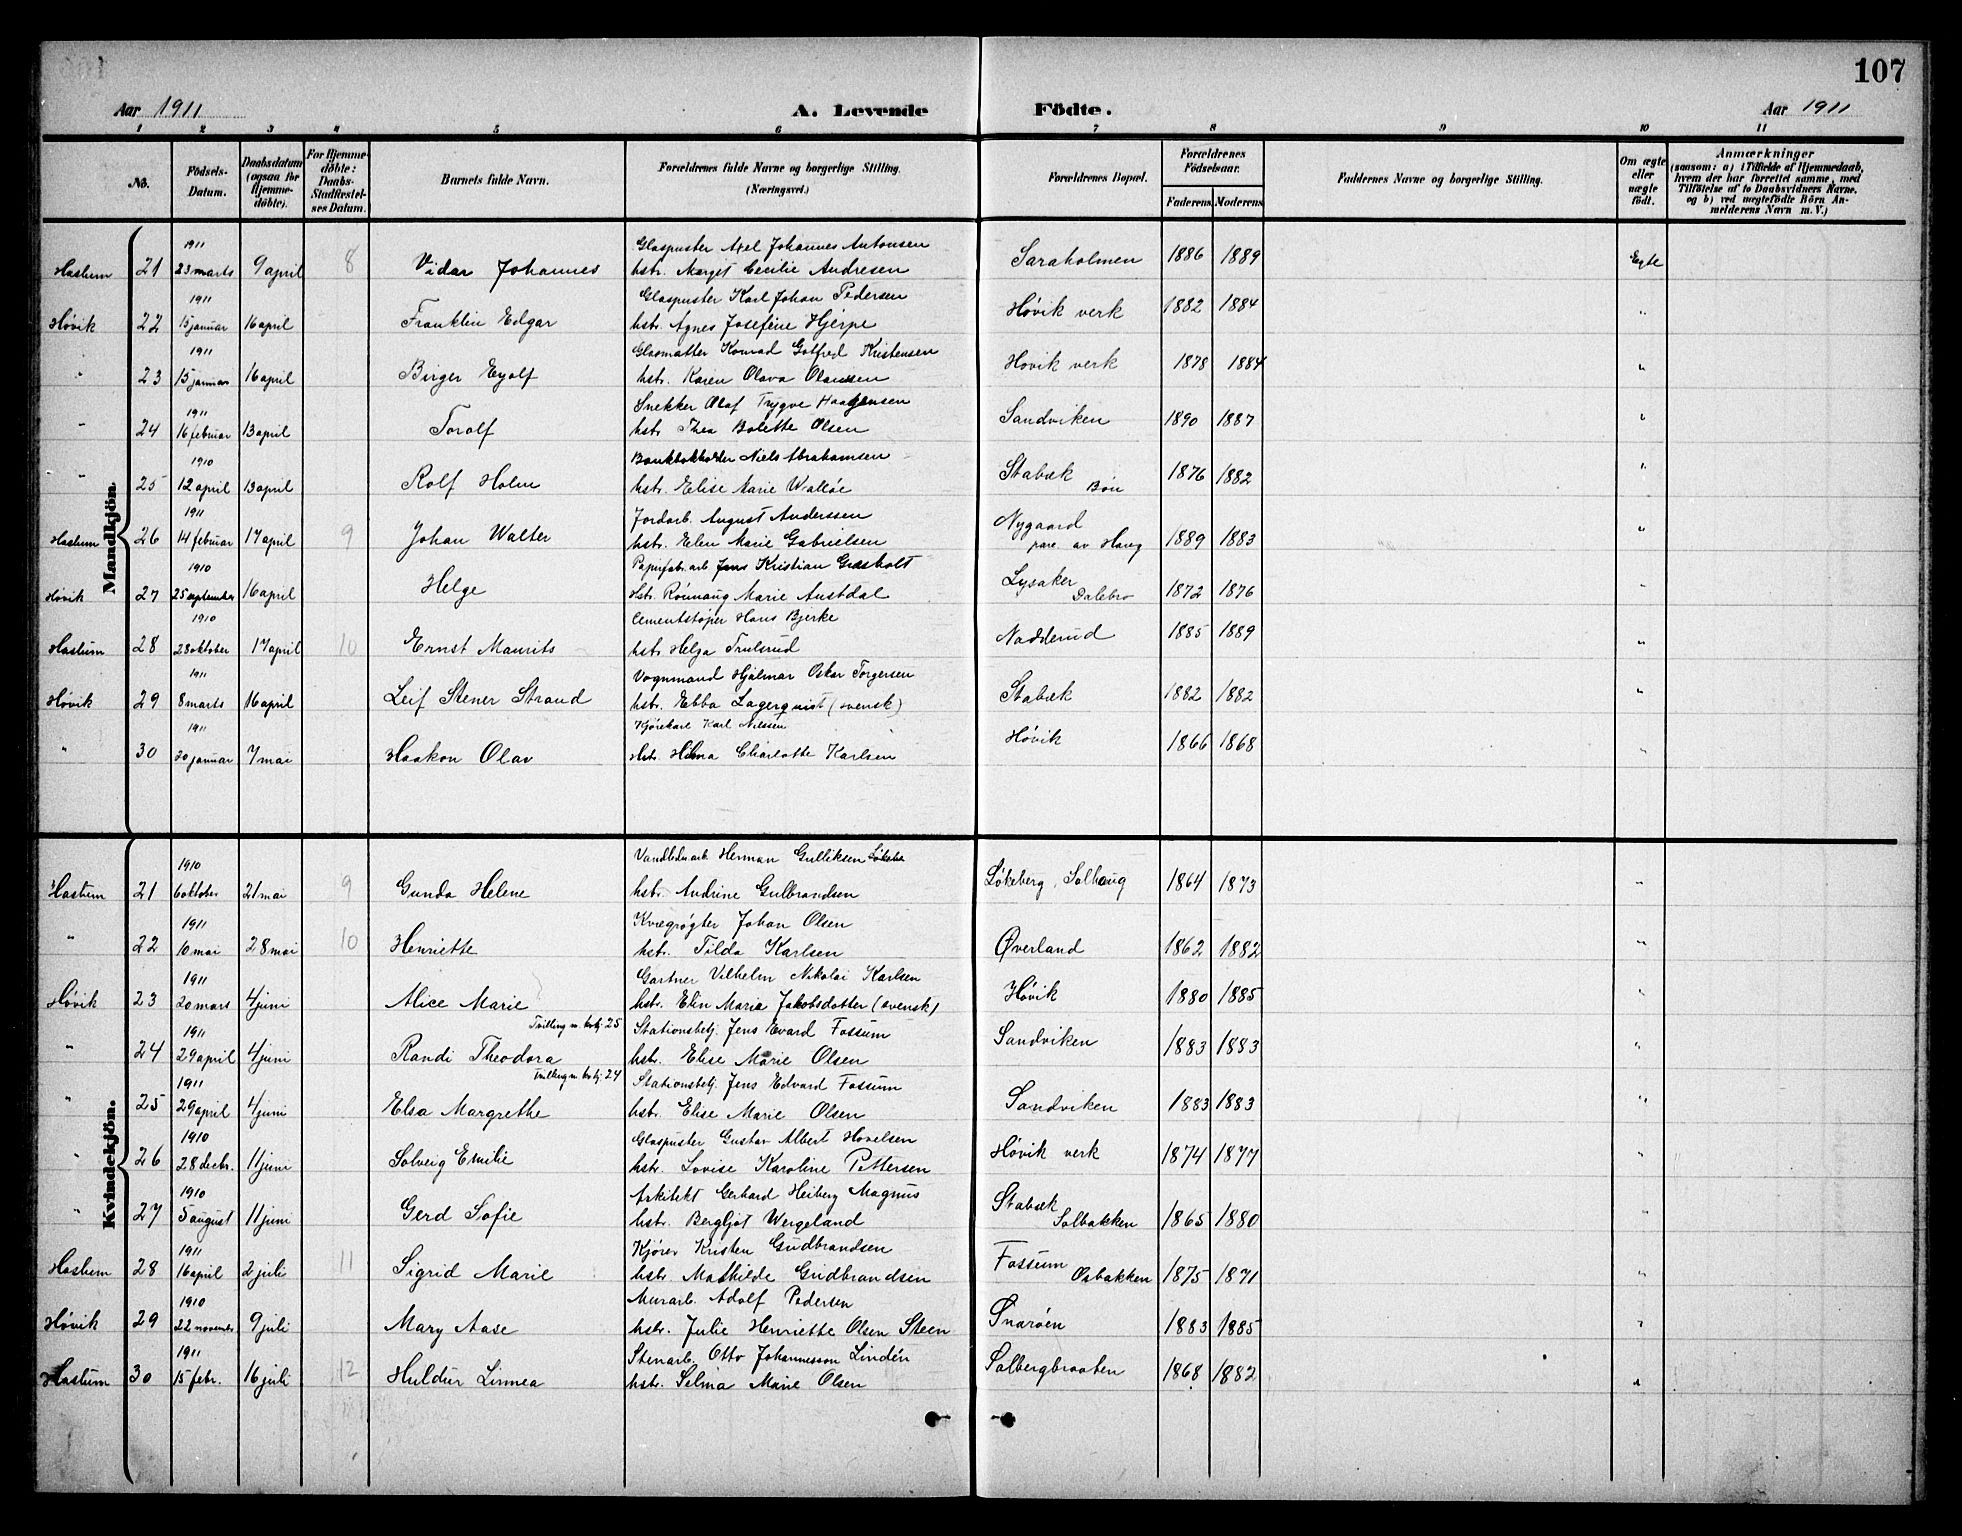 107
Aar 1911 A. Levende Födte. Aar 1911
1 2 3 4 5 6 7 8 9 10 11
No. Födsels-Datum. Daabsdatum (ogsaa for Hjemme-döbte). For Hjemme-döbte: Daabs-Stadfæstel-ses Datum. Barnets fulde Navn. Forældrenes fulde Navne og borgerlige Stilling. (Næringsvei.) Forældrenes Bopæl. Forældrenes Födselsaar. Faderens Moderens Faddernes Navne og borgerlige Stilling. Om ægte eller uægte födt. Anmærkninger
(saasom: a) i Tilfælde af Hjemmedaab, hvem der har forrettet samme, med Tilföielse af to Daabsvidners Navne. og b) ved uægtefödte Börn Anmelderens Navn m. V.)
Mandkjön
1911 Glaspuster Axel Johannes Antonsen
Haslum 21 23 marts 9 april 8 Vidar Johannes hstr. Marget Cecilie Andresen Saraholmen 1886 1889 Egte
1911 Glaspuster Karl Johan Pedersen
Høvik 22 15 januar 16 april Franklin Edgar hstr. Agnes Josefine Hjerpe Høvik verk 1882 1884 "
1911 Glasmatter Konrad Gotfred Kristensen
" 23 15 januar 16 april Birger Eyolf hstr. Karen Olava Olaussen Høvik verk 1878 1884 "
1911 Snekker Olaf Trygve Haagensen
" 24 16 februar 13 april Torolf hstr. Thea Bolette Olsen Sandviken 1890 1887 "
1910 Bankbokholder Niels Abrahamsen
" 25 12 april 13 april Rolf Holm hstr. Elise Marie Walløe Stabæk Bøn 1876 1882 "
1911 Jordarb. August Anderssen
Haslum 26 14 februar 17 april 9 Johan Walter hstr. Elen Marie Gabrielsen Nygaard parc. av Haug 1889 1883 "
1910 Papirfabr. arb Jens Kristian Græsholt
Høvik 27 25 september 16 april Helge Hstr. Rønnaug Marie Austdal Lysaker Dalebro 1872 1876 "
1910 Cementstøper Hans Bjerke
Haslum 28 28 oktober 17 april 10 Ernst Maurits hstr. Helga Trulsrud Nadderud 1885 1889 "
1911 Vognmand Hjalmar Oskar Torgersen
Høvik 29 8 marts 16 april Leif Stener Strand hstr. Ebba Lagerqvist (svensk) Stabæk 1882 1882 "
1911 Kjørekarl Karl Nilssen
" 30 20 januar 7 mai Haakon Olav Hstr. Hilma Charlotte Karlsen Høvik 1866 1868 "
Kvindekjön.
1910 Vandledn arb Herman Gulliksen
Haslum 21 6 oktober 21 mai 9 Gunda Helene hstr. Andrine Gulbrandsen Løkeberg, Solhaug 1864 1873 "
1911 Kvægrøgter Johan Olsen
" 22 10 mai 28 mai 10 Henriette hstr. Tilda Karlsen Øverland 1862 1882 "
1911 Gartner Vilhelm Nikolai Karlsen
Høvik 23 20 mars 4 juni Alice Marie hstr. Elin Maria Jakobsdotter (svensk) Høvik 1880 1885 "
1911 Tvilling m. kvkj. 25 Stationsbetj. Jens Evard Fossum
" 24 29 april 4 juni Randi Theodora hstr. Elise Marie Olsen Sandviken 1883 1883 "
1911 Tvilling m. kvkj. 24 Stationsbetj. Jens Edvard Fossum
" 25 29 april 4 juni Elsa Margrethe hstr. Elise Marie Olsen Sandviken 1883 1883 "
1910 Glaspuster Gustav Albert Hovelsen
" 26 28 decbr. 11 juni Solveig Emilie hstr. Lovise Karoline Pettersen Høvik verk 1874 1877 "
1910 Arkitekt Gerhard Heiberg Magnus
" 27 5 august 11 juni Gerd Sofie hstr. Bergljot Wergeland Stabæk Solbakken 1865 1880 "
1911 Kjører Kristen Gudbrandsen
Haslum 28 16 april 2 juli 11 Sigrid Marie hstr. Mathilde Gudbrandsen Fossum Osbakken 1875 1871 "
1910 Murarb. Adolf Pedersen
Høvik 29 22 november 9 juli Mary Aase hstr. Julie Henriette Olsen Steen Snarøen 1883 1885 "
1911 Stenarb. Otto Johannesson Lindén
Haslum 30 15 febr. 16 juli 12 Huldur Linnea hstr. Selma Marie Olsen Solbergbraaten 1868 1882 "